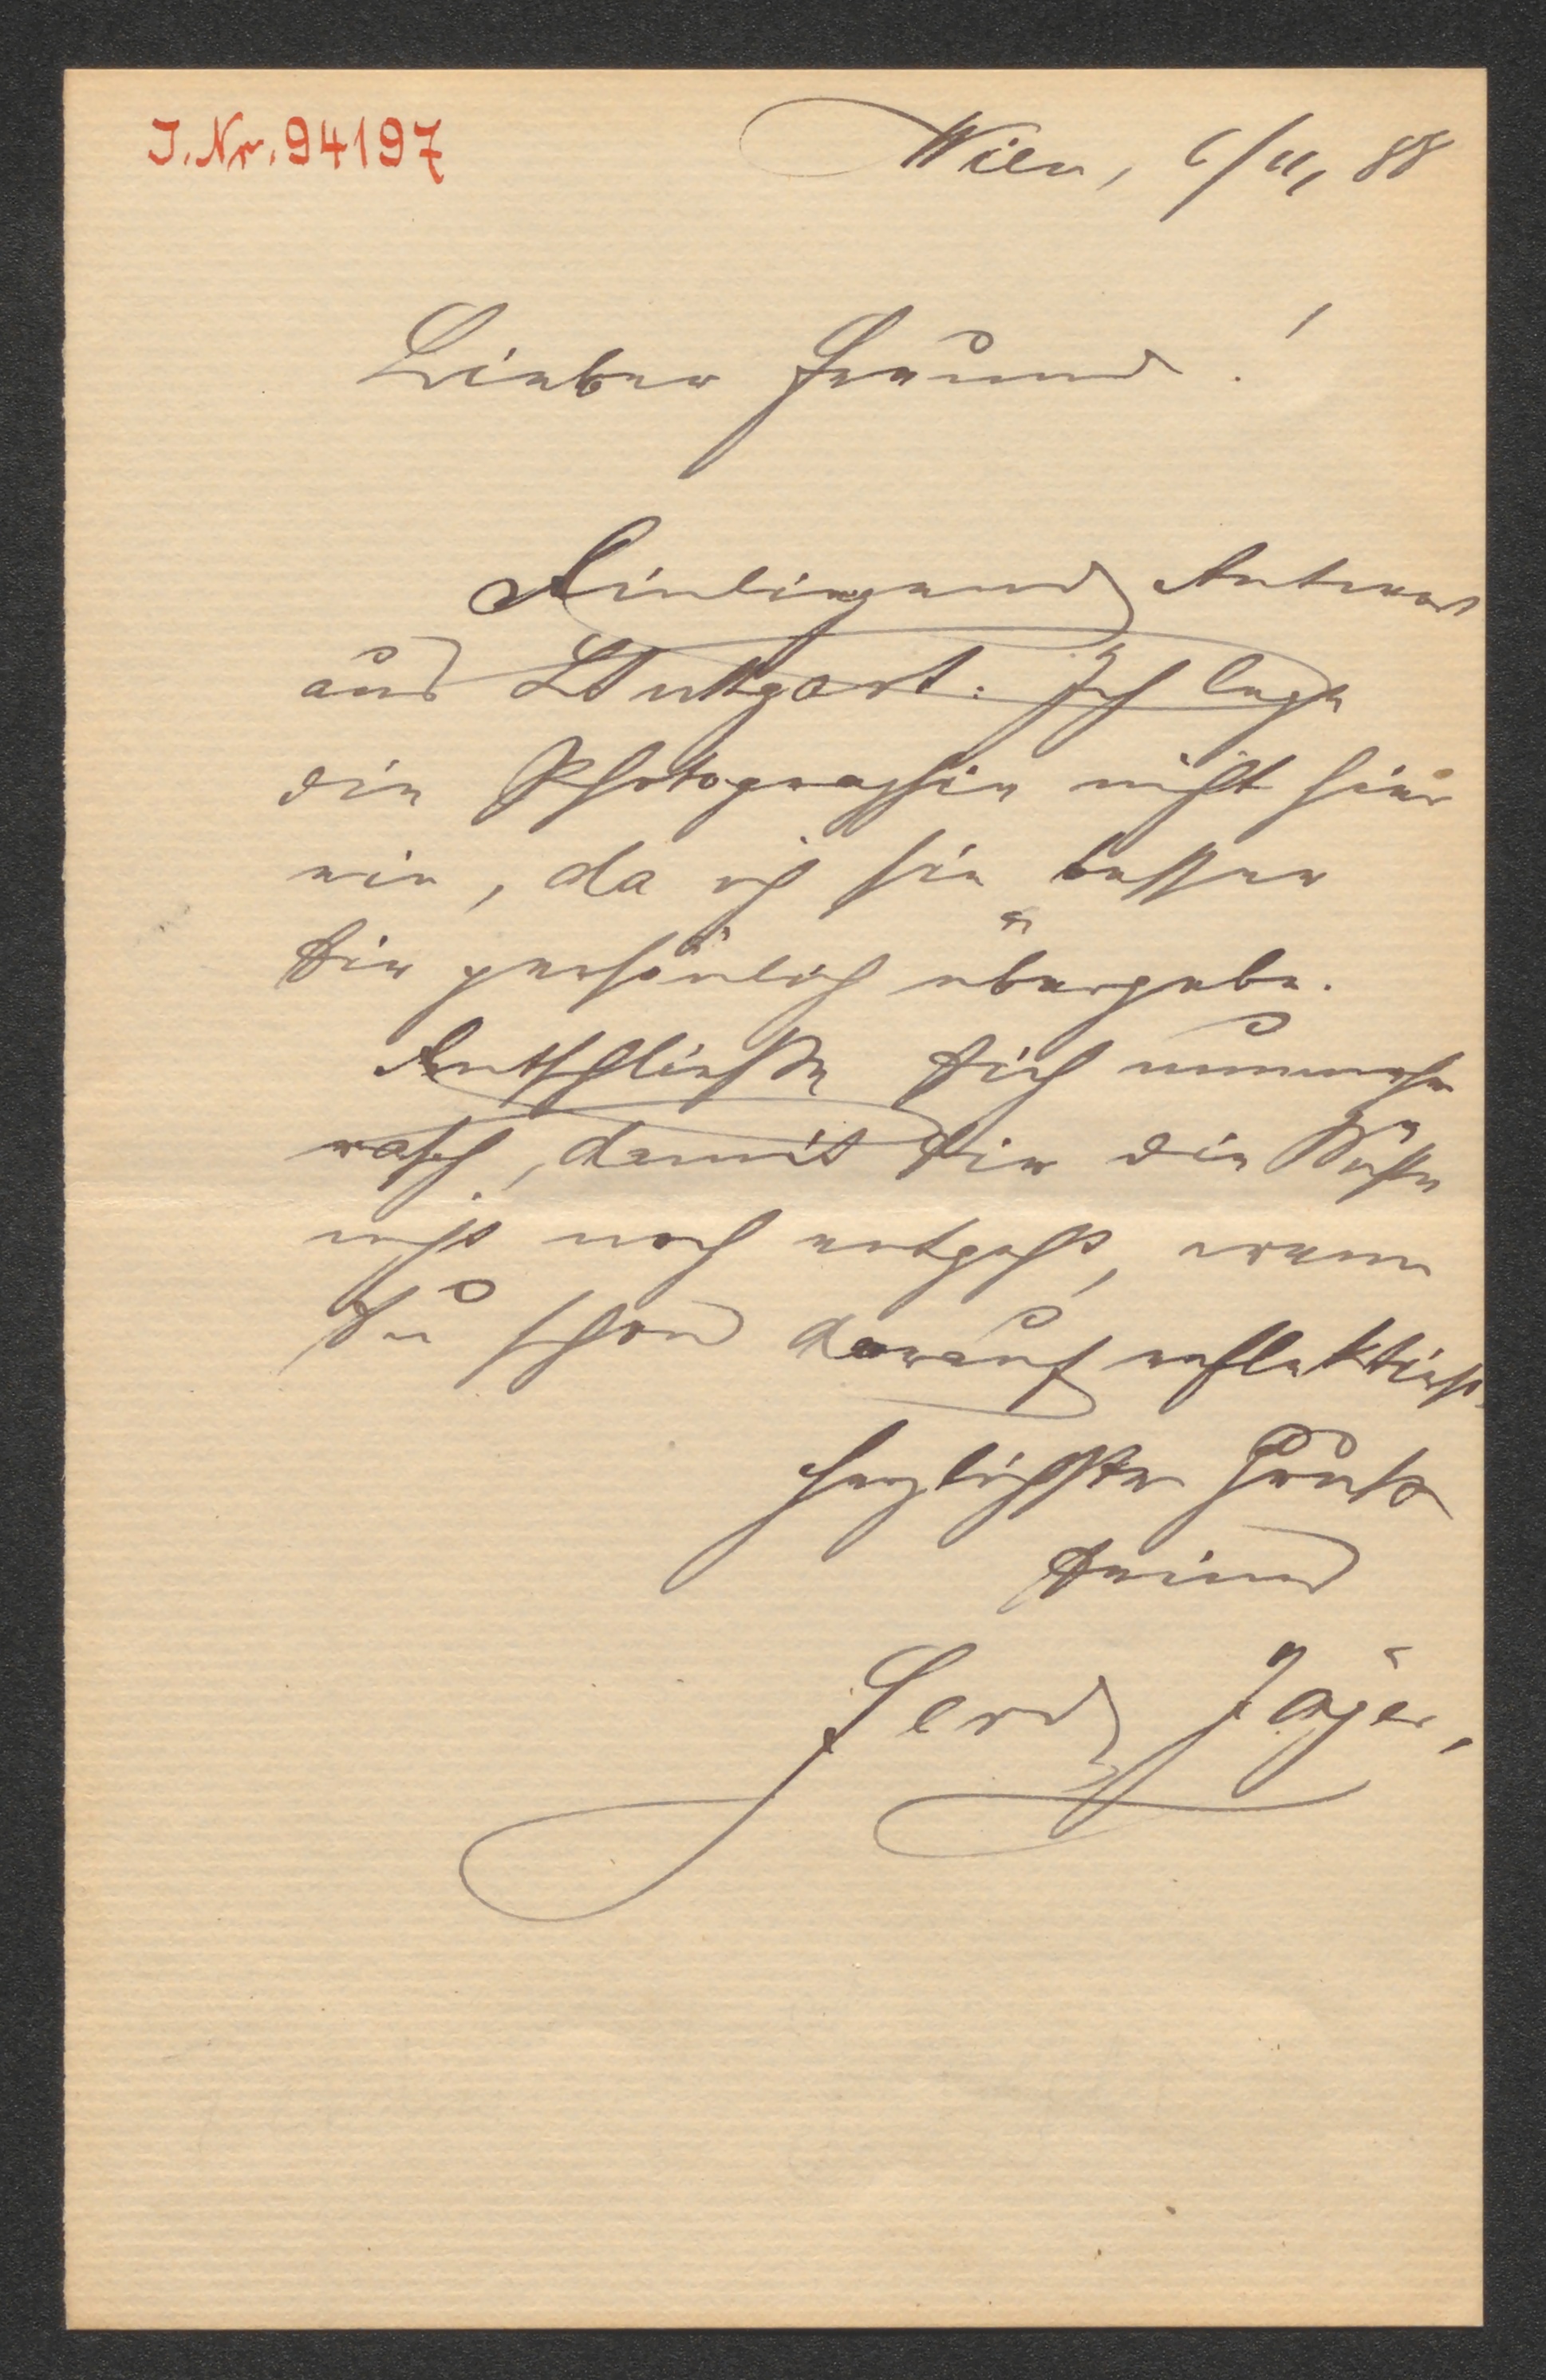 J. Nr. 94197
Wien, 6/11, 88
Lieber Freund!
Einliegend Antwort
aus Stuttgart. Ich lege
die Photographie nicht hier
ein, da ich sie besser
Dir persönlich übergebe.
Entschließe Dich nunmehr
rasch, damit Dir die Büste
nicht noch entgeht, wenn
Du schon darauf reflektirst.
Herzlichster Gruß
Deines
Ferd Jäger,